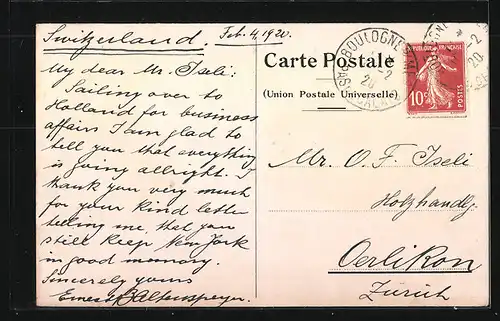 Switzerland.
Feb. 4, 1920.
My dear Mr. Iseli:
Sailing over to
Holland for business
affairs I am glad to
tell you that everything
is going allright. I
thank you very much
for your kind letter
telling me, that you
still keep New York
in good memory.
Sincerely yours
Ernest
Carte Postale
(Union Postale Universelle)
BOULOGNE
PAS-DE-CALAIS
20
RÉPUBLIQUE FRANÇAISE
10c
POSTES
-2
20
Mr. O. F. Iseli
Holzhandlg.
Oerlikon
Zürich